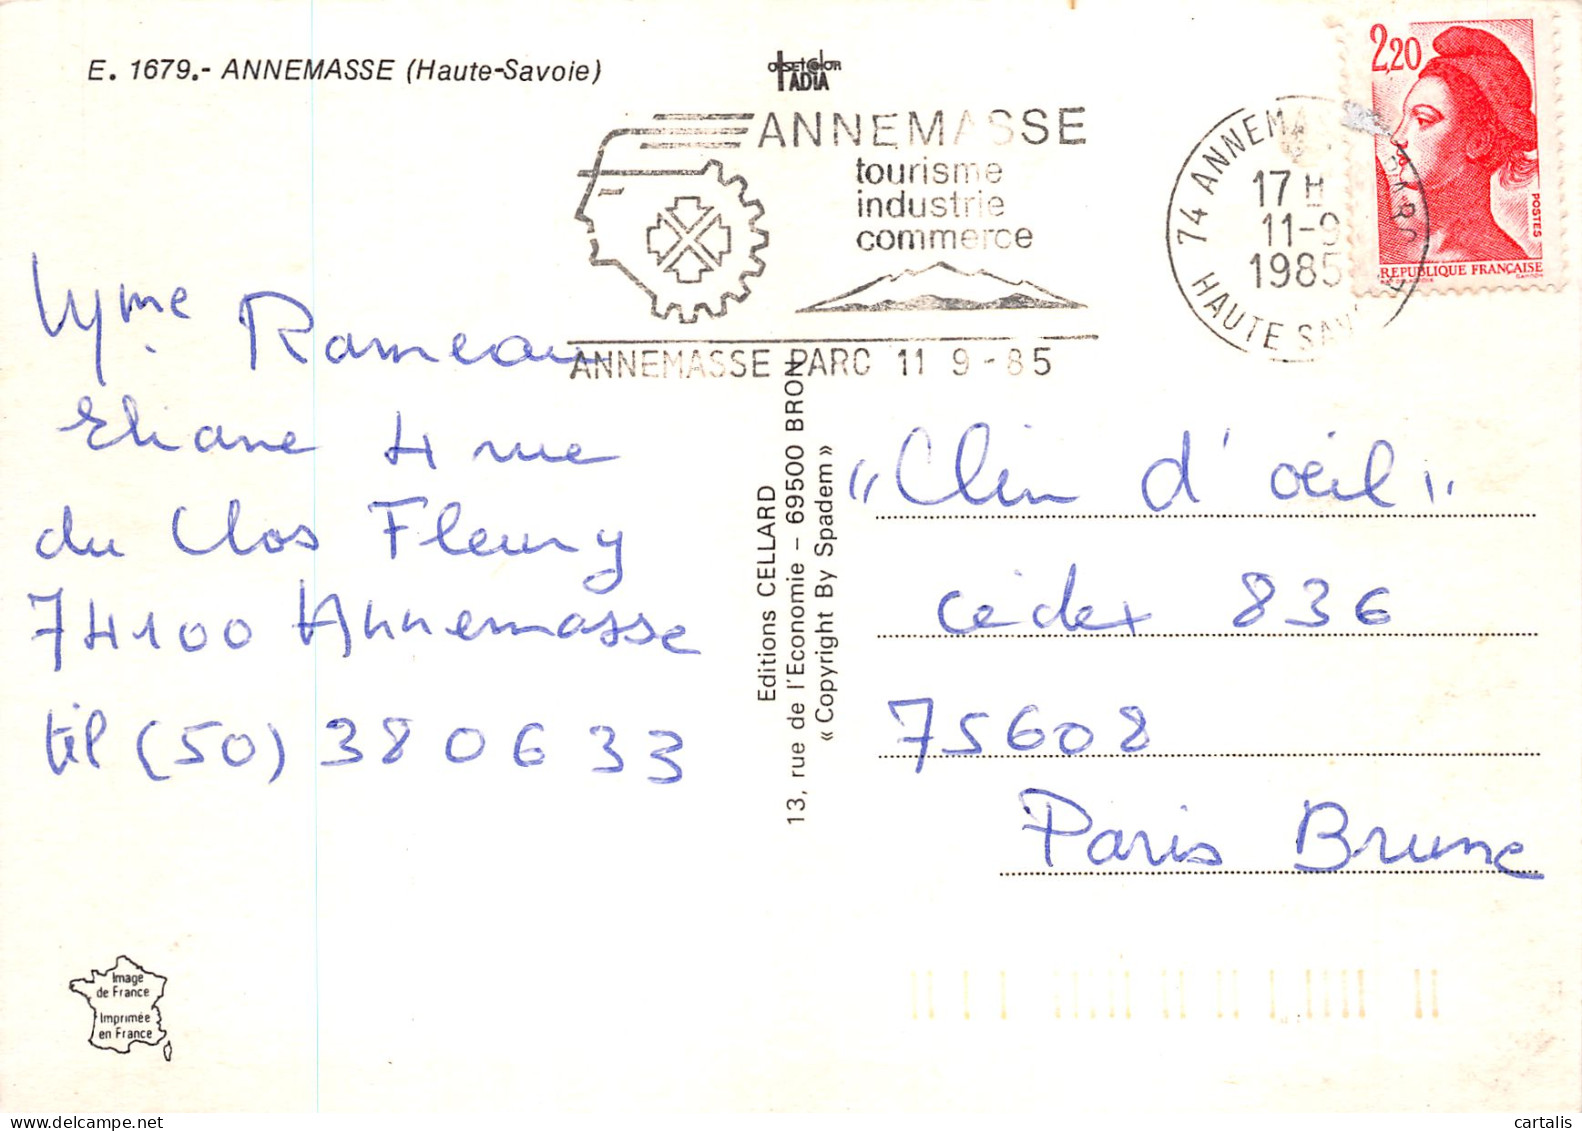 E. 1679.- ANNEMASSE (Haute-Savoie)
OFFSETCOLOR
IADIA
2,20
POSTES
REPUBLIQUE FRANÇAISE
ANNEMASSE
tourisme
industrie
commerce
ANNEMASSE PARC 11 9 - 85
74 ANNEMASSE PARC
17 H
11-9
1985
HAUTE SAVOIE
Mme Rameau
Eliane 4 rue
du Clos Fleury
74100 Annemasse
tél (50) 38 06 33
Editions CELLARD
13, rue de l'Economie – 69500 BRON
« Copyright By Spadem »
"Clin d'oeil"
Cédex 836
75608
Paris Brune
Image
de France
Imprimée
en France
cartalis